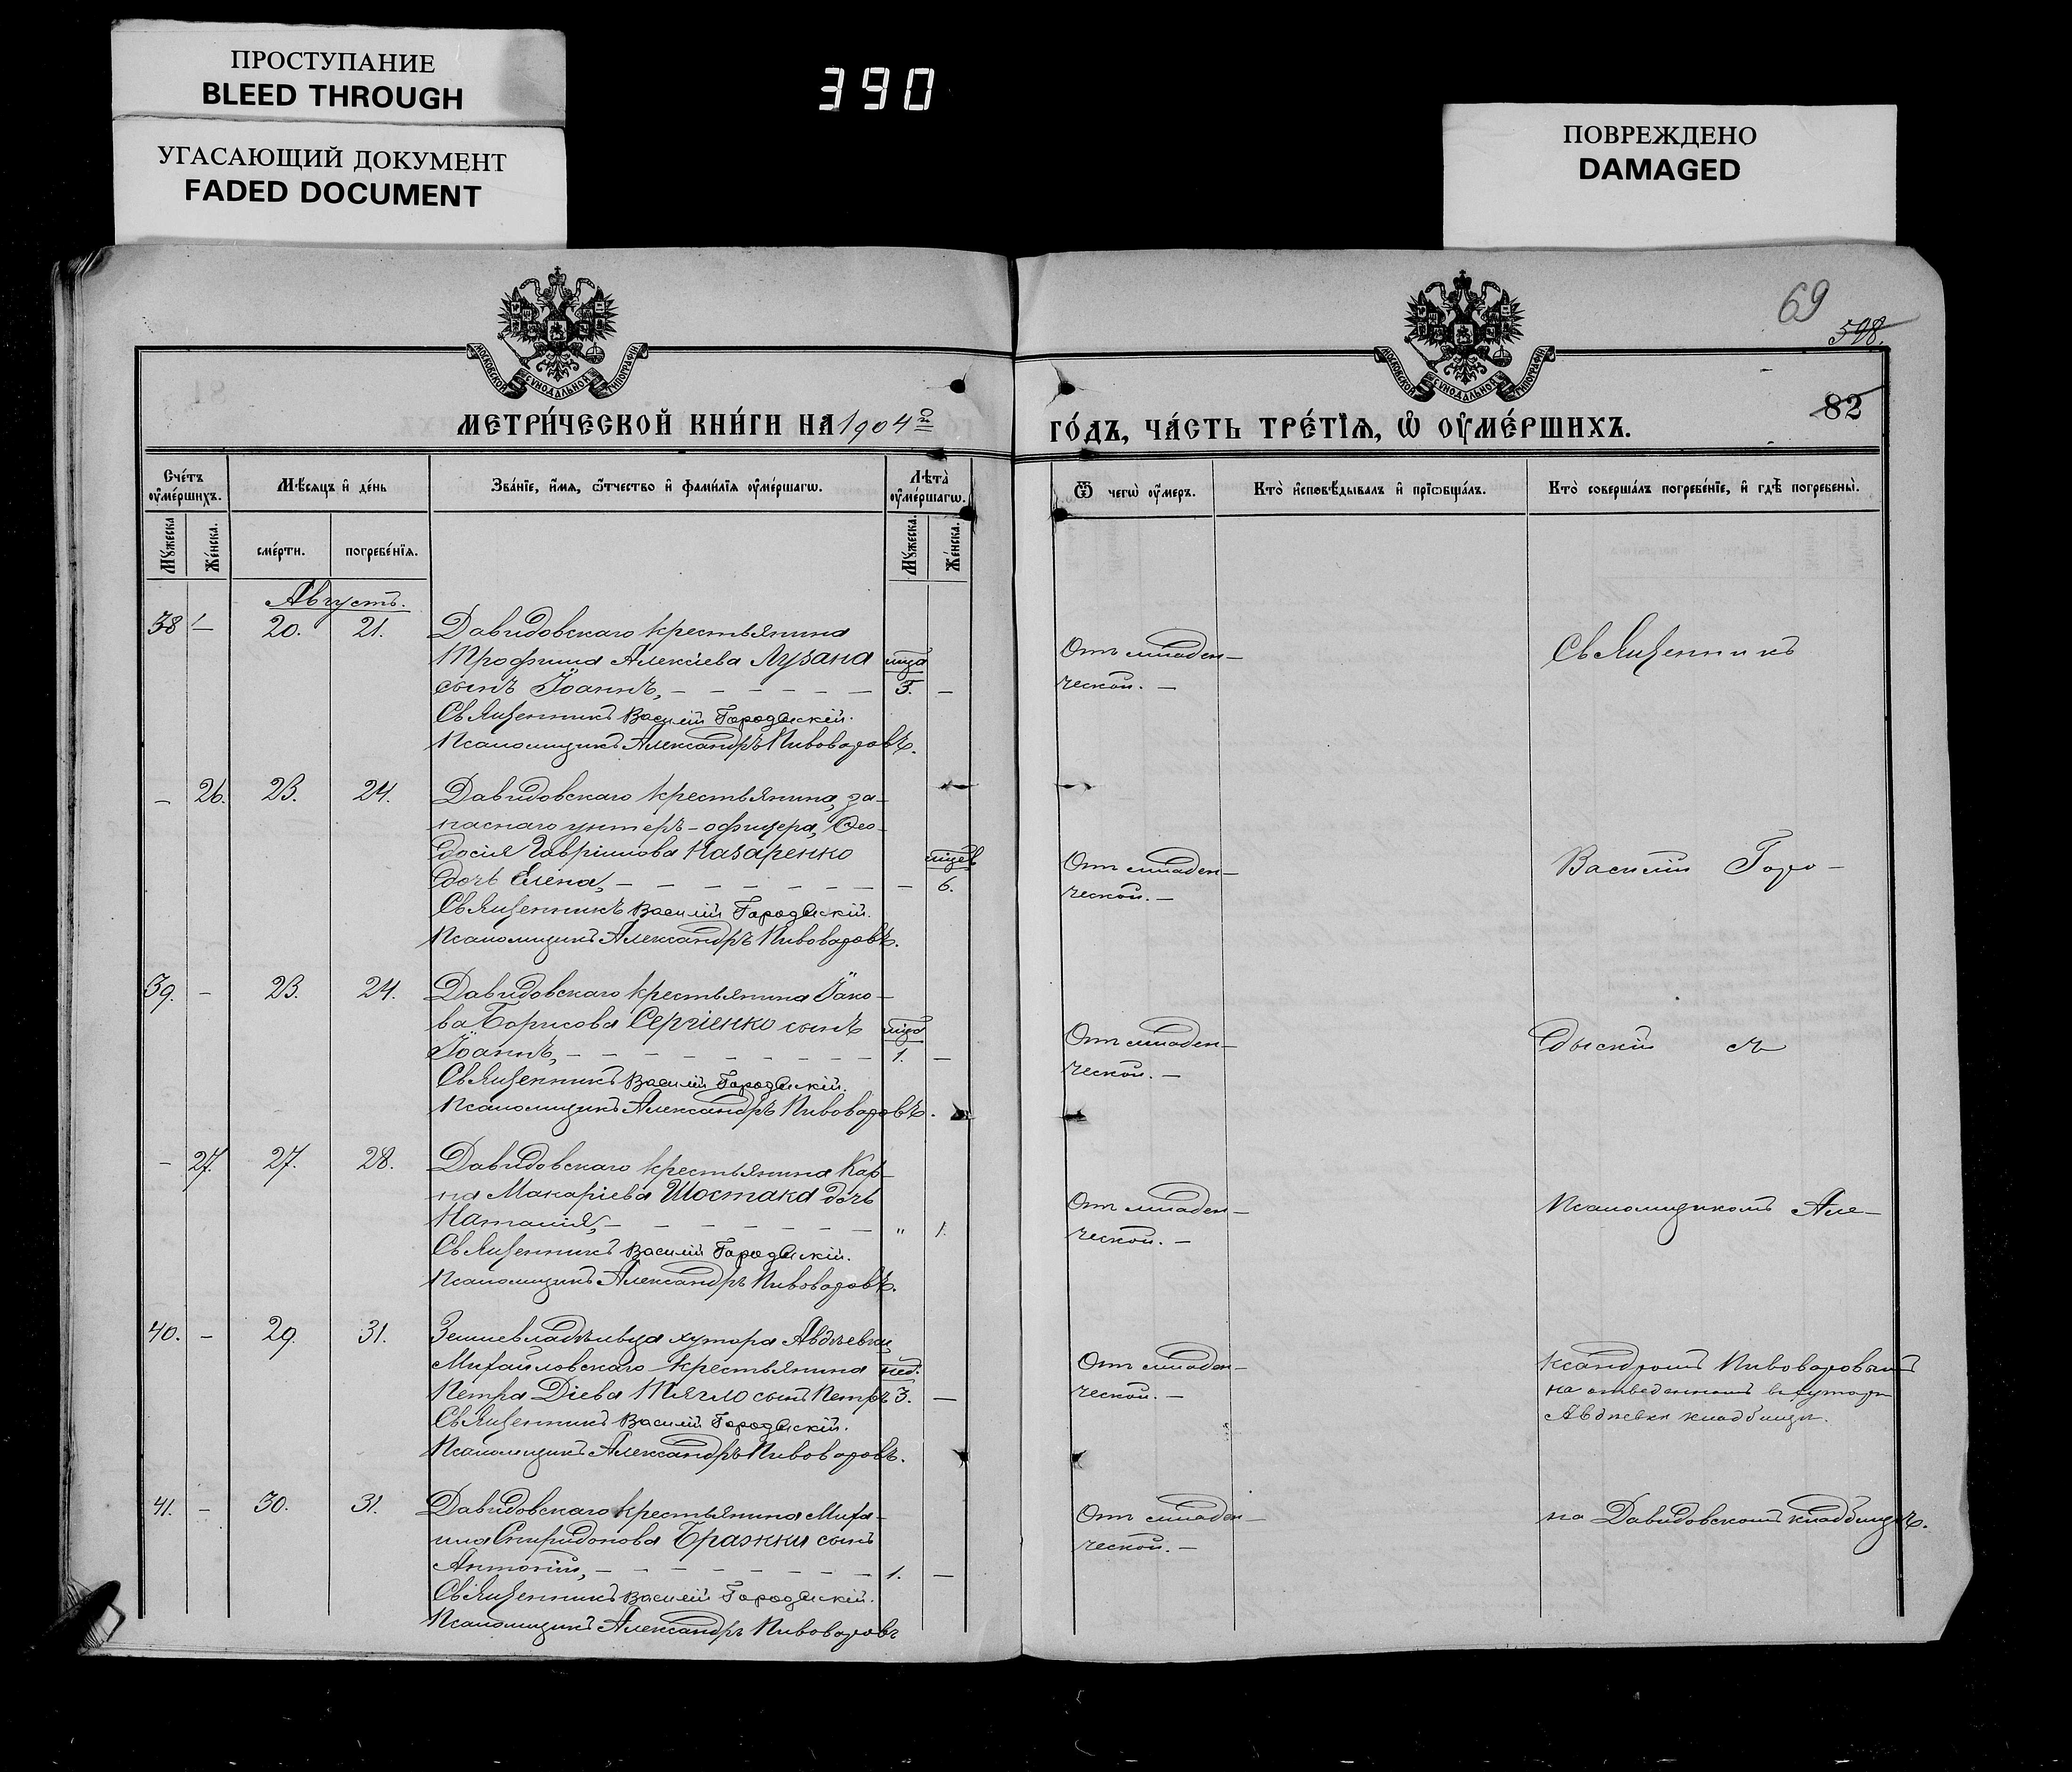 ПРОСТУПАНИЕ
BLEED THROUGH
УГАСАЮЩИЙ ДОКУМЕНТ
FADED DOCUMENT
390
ПОВРЕЖДЕНО
DAMAGED
69
598.
82
МОСКОВСКОЙ СѴНОДАЛЬНОЙ ТИПОГРАФІИ
МОСКОВСКОЙ СѴНОДАЛЬНОЙ ТИПОГРАФІИ
МЕТРИ́ЧЕСКОЙ КНИ́ГИ НА 1904й
ГО́ДЪ, ЧА́СТЬ ТРЕ́ТІѦ, Ѡ҆ ОУ҆МЕ́РШИХЪ.
Сче́тъ оу҆ме́ршихъ.
Мѣ́сѧцъ и҆ де́нь
Зва́нїе, и҆́мѧ, ѻ҆́тчество и҆ фами́лїѧ оу҆ме́ршагѡ.
Лѣта̀ оу҆ме́ршагѡ.
Ѿ чегѡ̀ оу҆́меръ.
Кто̀ и҆сповѣ́дывалъ и҆ прїѡбща́лъ.
Кто̀ соверша́лъ погребе́нїе, и҆ гдѣ̀ погребены̀.
Мꙋ́жеска
Же́нска.
сме́рти.
погребе́нїѧ.
Мꙋ́жеска.
Же́нска.
Августъ.
38 — 20. 21. Давидовскаго крестьянина
Трофима Алексіева Лузана мца
сынъ Іоаннъ, — 3. —
Священникъ Василій Городыскій.
Псаломщикъ Александръ Пивоваровъ.
Отъ младен-
ческой. —
Священникъ
— 26. 23. 24. Давидовскаго крестьянина, за-
паснаго унтеръ-офицера, Ѳео-
досія Гавріилова Назаренко мцев
дочь Елена, — — 6.
Священникъ Василій Городыскій.
Псаломщикъ Александръ Пивоваровъ.
Отъ младен-
ческой. —
Василій Горо-
39. — 23. 24. Давидовскаго крестьянина Іако-
ва Борисова Сергіенко сынъ мца
Іоаннъ, — 1. —
Священникъ Василій Городыскій.
Псаломщикъ Александръ Пивоваровъ.
Отъ младен-
ческой. —
дыскій съ
— 27. 27. 28. Давидовскаго крестьянина Кар-
па Макаріева Шостака дочь
Наталія, — „ 1.
Священникъ Василій Городыскій.
Псаломщикъ Александръ Пивоваровъ.
Отъ младен-
ческой. —
Псаломщикомъ Але-
40. — 29. 31. Землевладѣльца хутора Авдѣевки,
Михайловскаго крестьянина нед.
Петра Діева Тягло сынъ Петръ 3. —
Священникъ Василій Городыскій.
Псаломщикъ Александръ Пивоваровъ.
Отъ младен-
ческой. —
ксандромъ Пивоваровымъ
на отведенномъ в хуторѣ
Авдѣевкѣ кладбищѣ.
41. — 30. 31. Давидовскаго крестьянина Миха-
ила Спиридонова Бражки сынъ
Антоній, — 1. —
Священникъ Василій Городыскій.
Псаломщикъ Александръ Пивоваровъ
Отъ младен-
ческой. —
на Давидовскомъ кладбищѣ.